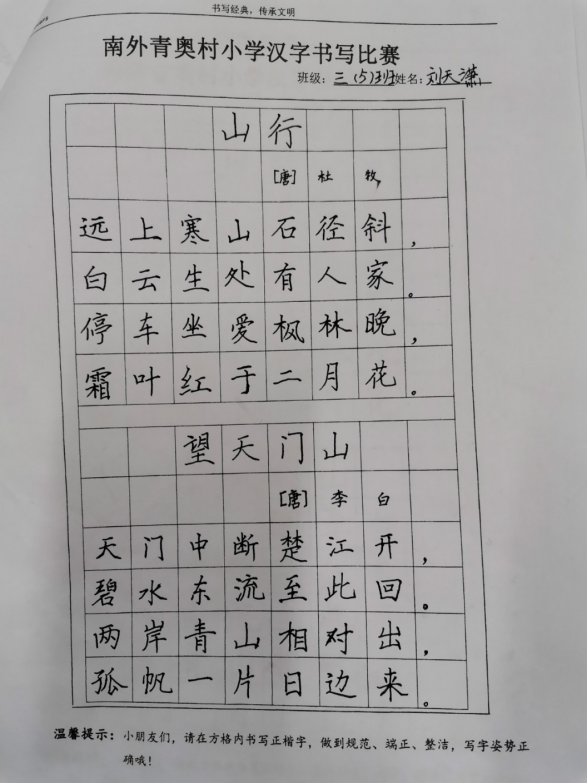 书写经典，传承文明
南外青奥村小学汉字书写比赛
班级：三（5）班姓名：刘天潇
山行
[唐] 杜牧
远上寒山石径斜，
白云生处有人家。
停车坐爱枫林晚，
霜叶红于二月花。
望天门山
[唐] 李白
天门中断楚江开，
碧水东流至此回。
两岸青山相对出，
孤帆一片日边来。
温馨提示：小朋友们，请在方格内书写正楷字，做到规范、端正、整洁，写字姿势正
确哦！